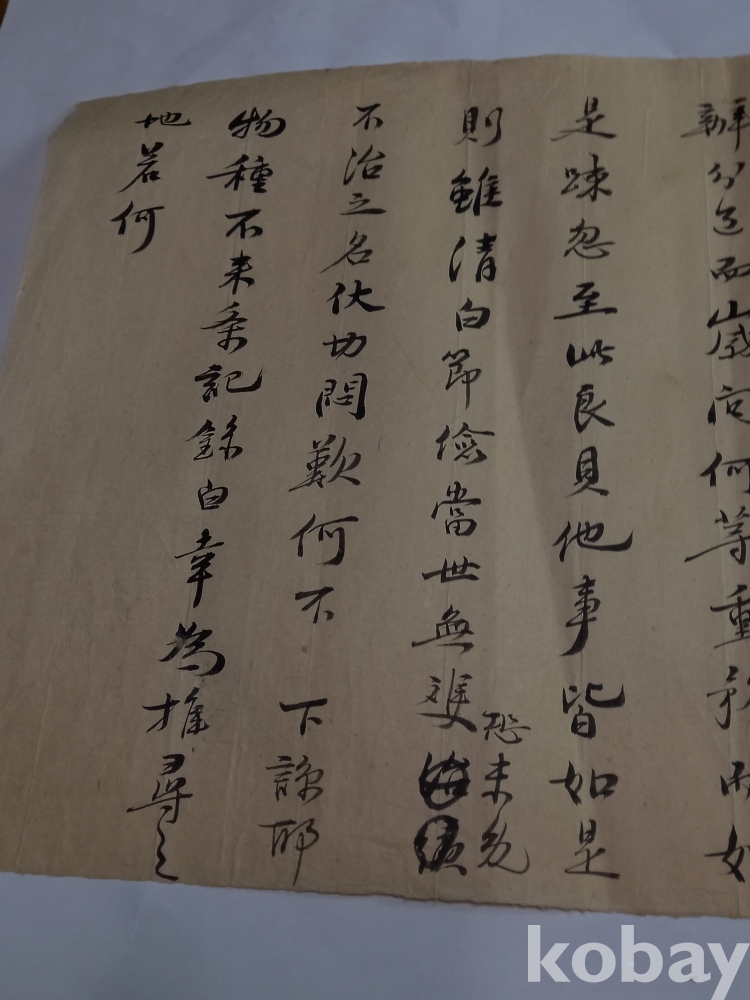 辦分之而山崴向何等重於而如
是踈忽至此良貝他事皆如是
則雖清白節儉當世無雙恐未免
不治之名伏切悶歎何不下諒耶
物種不来条記錄白幸為推尋之
地若何
kobay